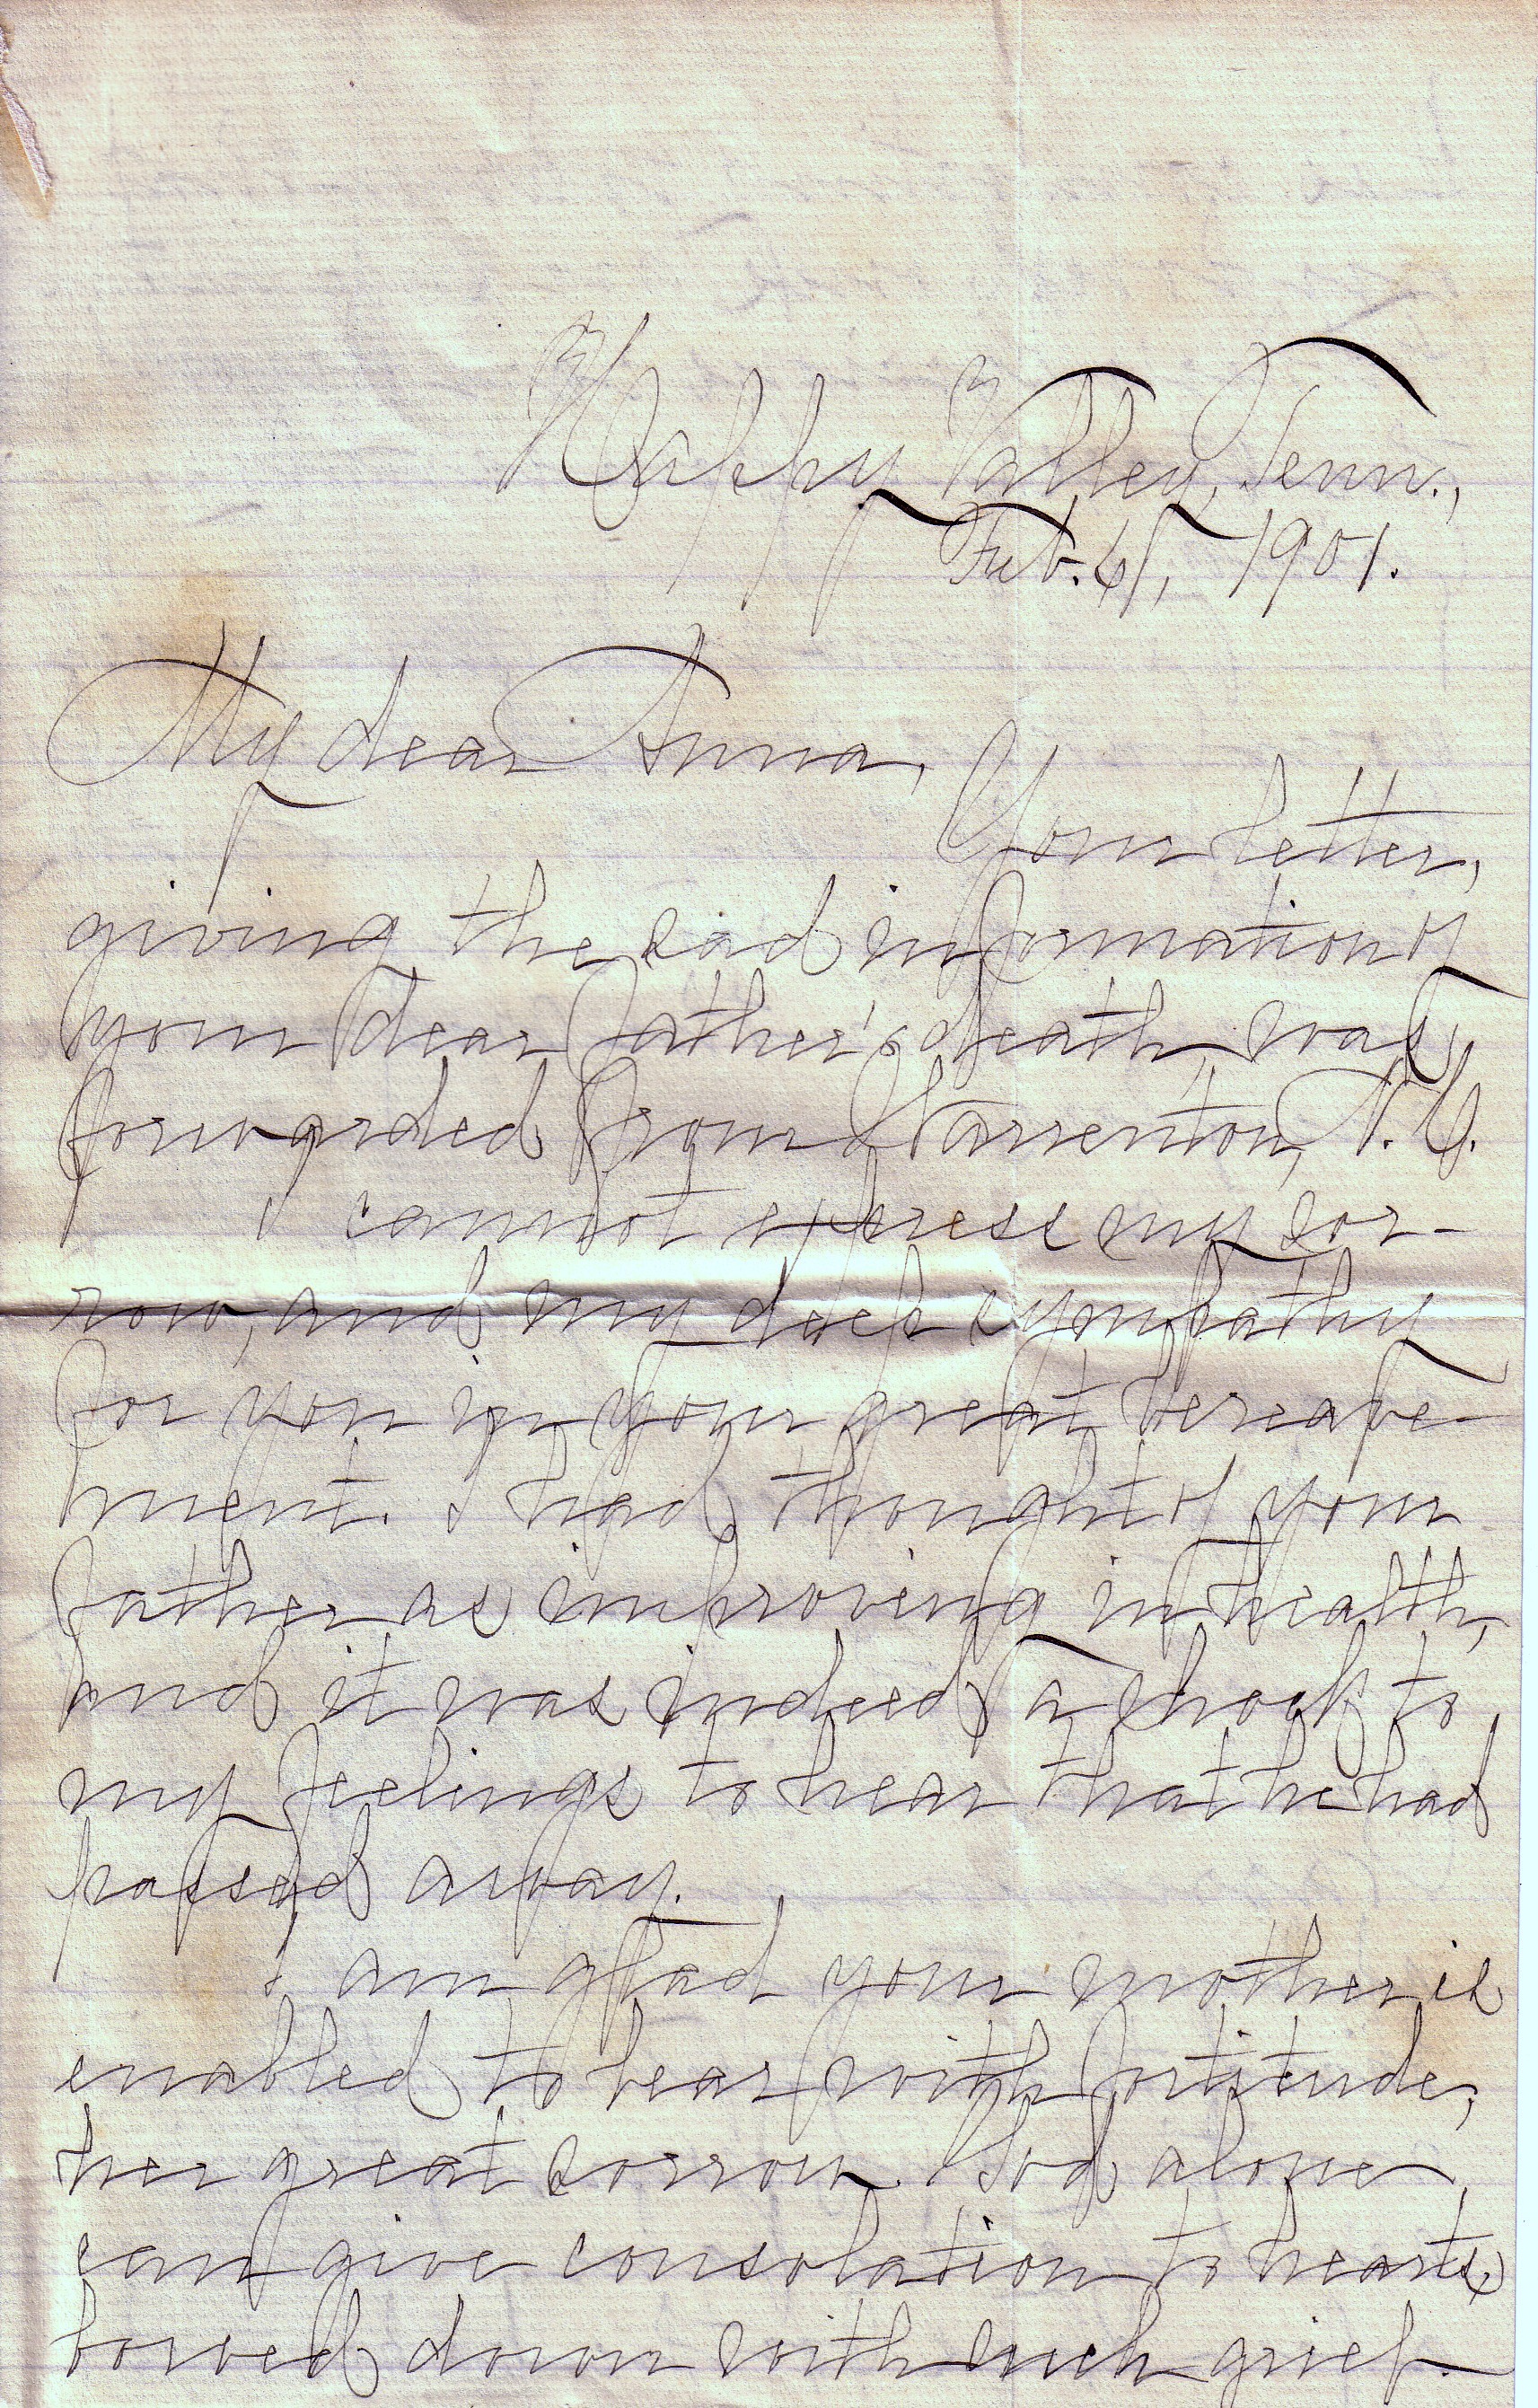 Happy Valley, Tenn.,
Feb. 4, 1901.
My dear Anna,
Your letter,
giving the sad information of
your dear father's death was
forwarded from Warrenton, N.C.
I cannot express my sor-
row, and my deep sympathy
for you in your great bereave-
ment. I had thought of your
father as improving in health,
and it was indeed a shock to
my feelings to hear that he had
passed away.
I am glad your mother is
enabled to bear with fortitude,
her great sorrow. God alone
can give consolation to hearts,
bowed down with such grief.